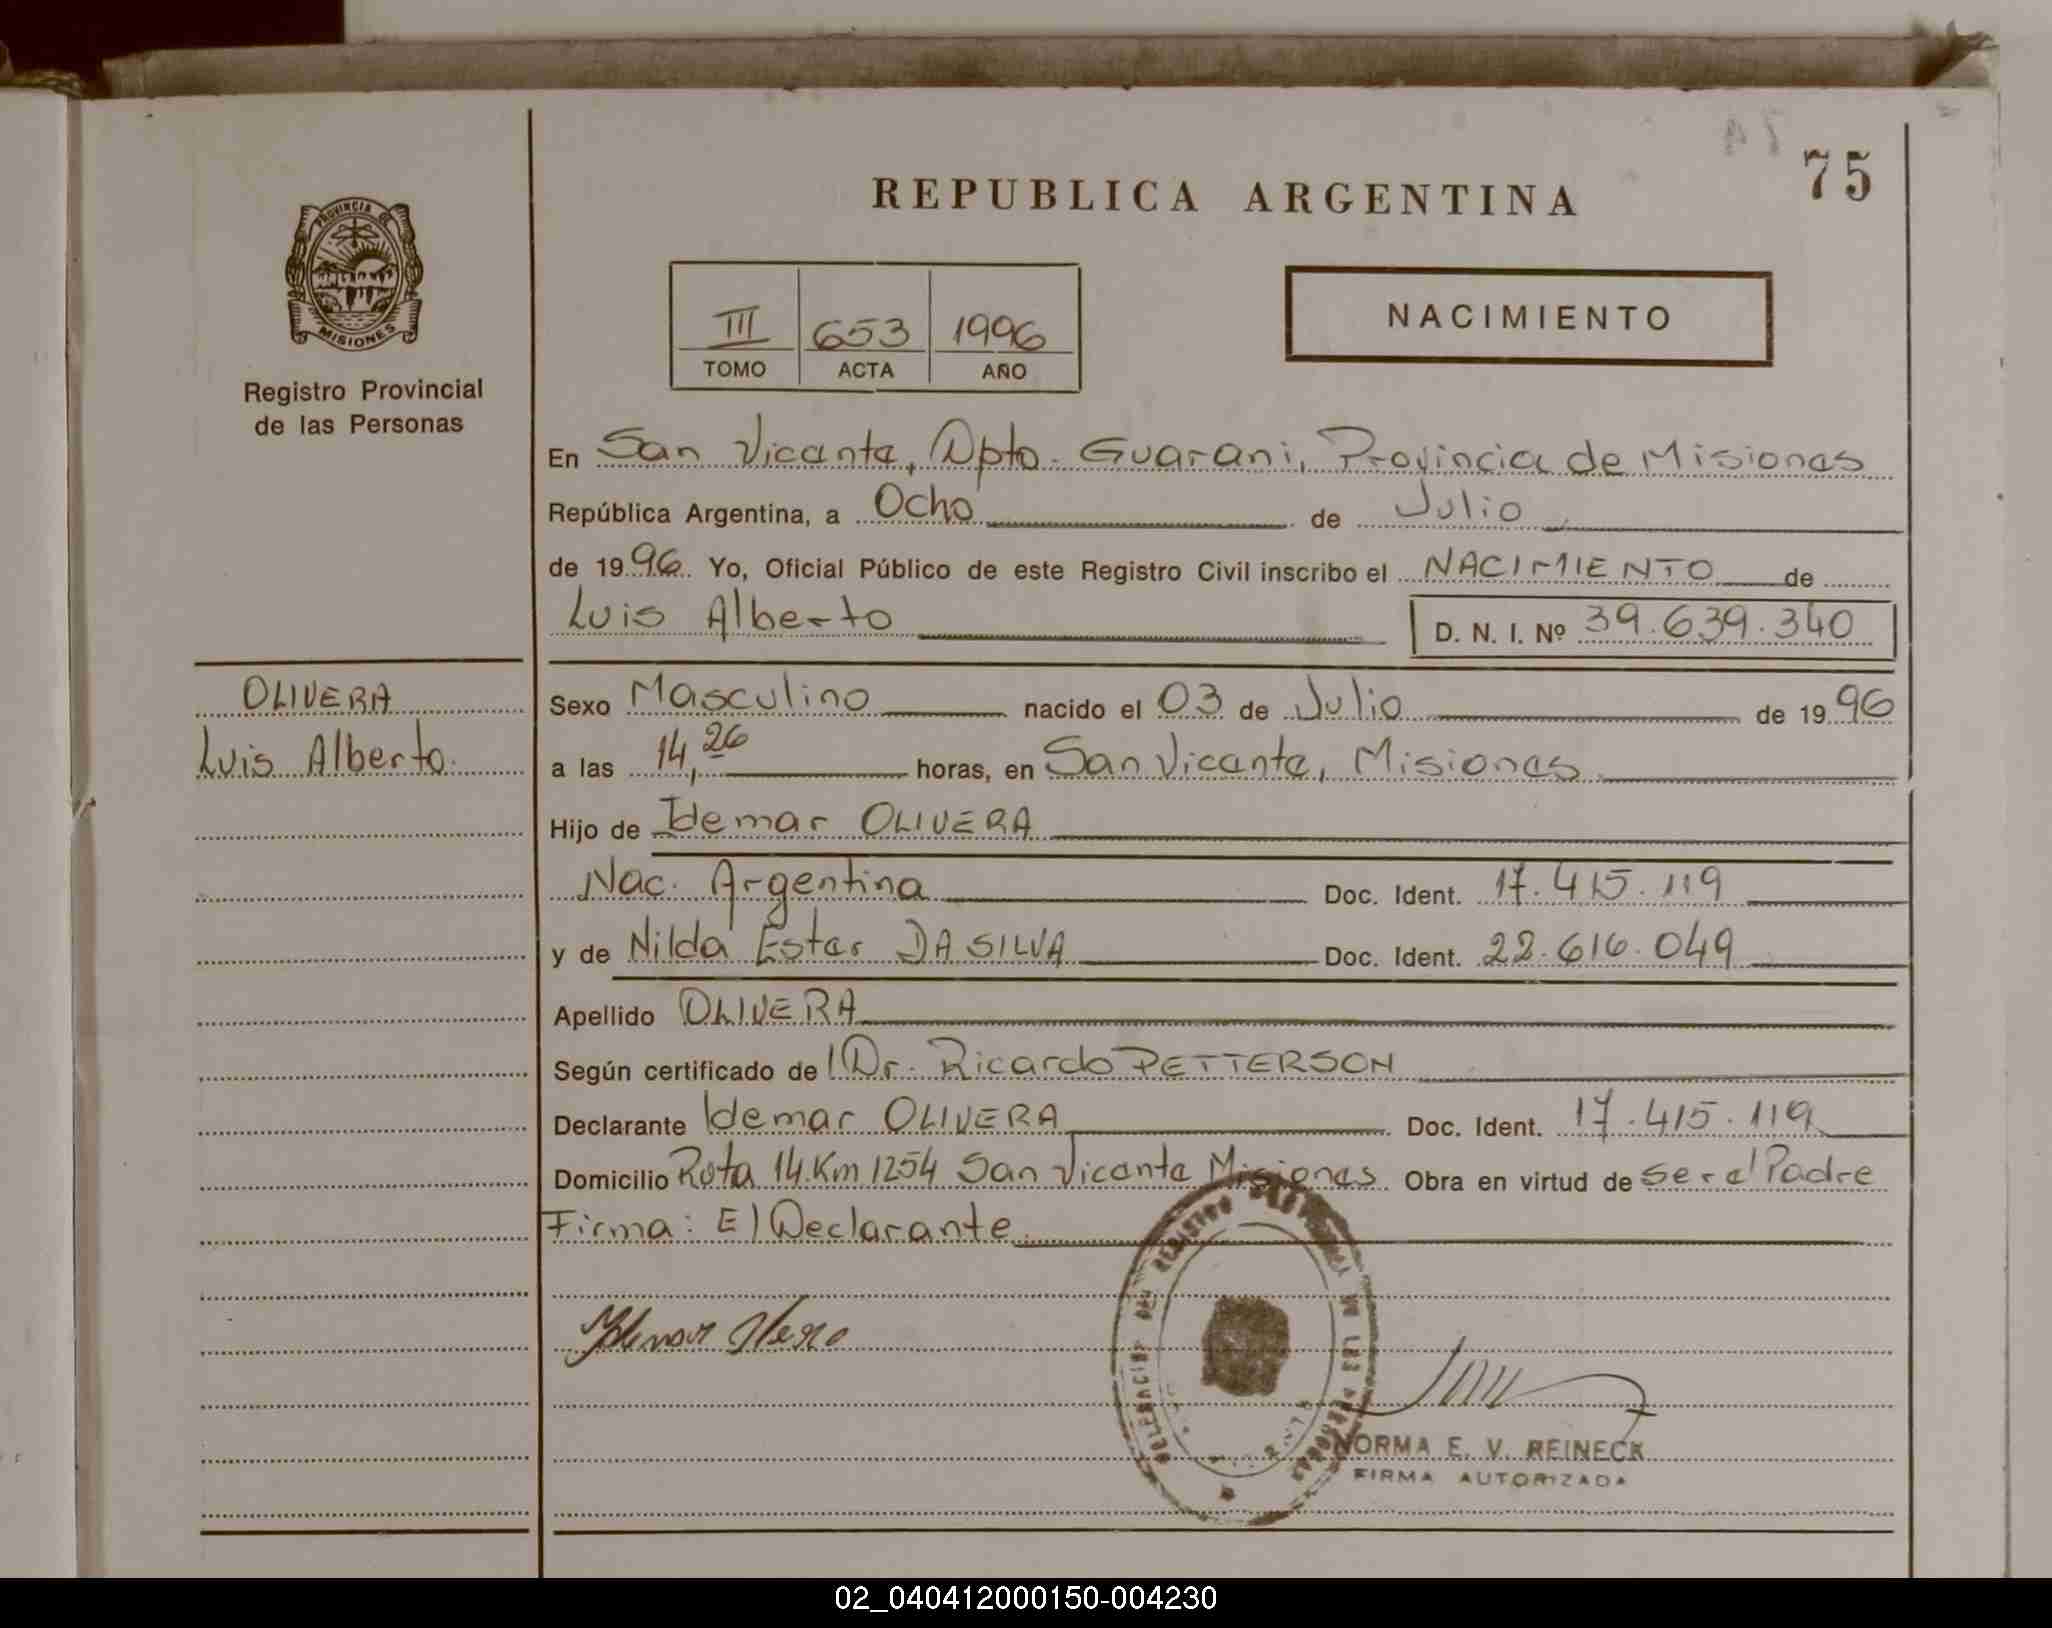 75
REPUBLICA ARGENTINA
PROVINCIA DE
MISIONES
Registro Provincial
de las Personas
NACIMIENTO
III 653 1996
TOMO ACTA AÑO
En San Vicente, Dpto. Guarani, Provincia de Misiones
República Argentina, a Ocho de Julio
de 1996. Yo, Oficial Público de este Registro Civil inscribo el NACIMIENTO de
Luis Alberto D. N. I. Nº 39.639.340
OLIVERA
Luis Alberto.
Sexo Masculino nacido el 03 de Julio de 1996
a las 14,26 horas, en San Vicente, Misiones
Hijo de Idemar OLIVERA
Nac. Argentina Doc. Ident. 17.415.119
y de Nilda Ester DA SILVA Doc. Ident. 22.616.049
Apellido OLIVERA
Según certificado de Dr. Ricardo PETTERSON
Declarante Idemar OLIVERA Doc. Ident. 17.415.119
Domicilio Ruta 14 Km 1254 San Vicente Misiones. Obra en virtud de ser el Padre
Firma: El Declarante.
NORMA E. V. REINECK
FIRMA AUTORIZADA
02_040412000150-004230